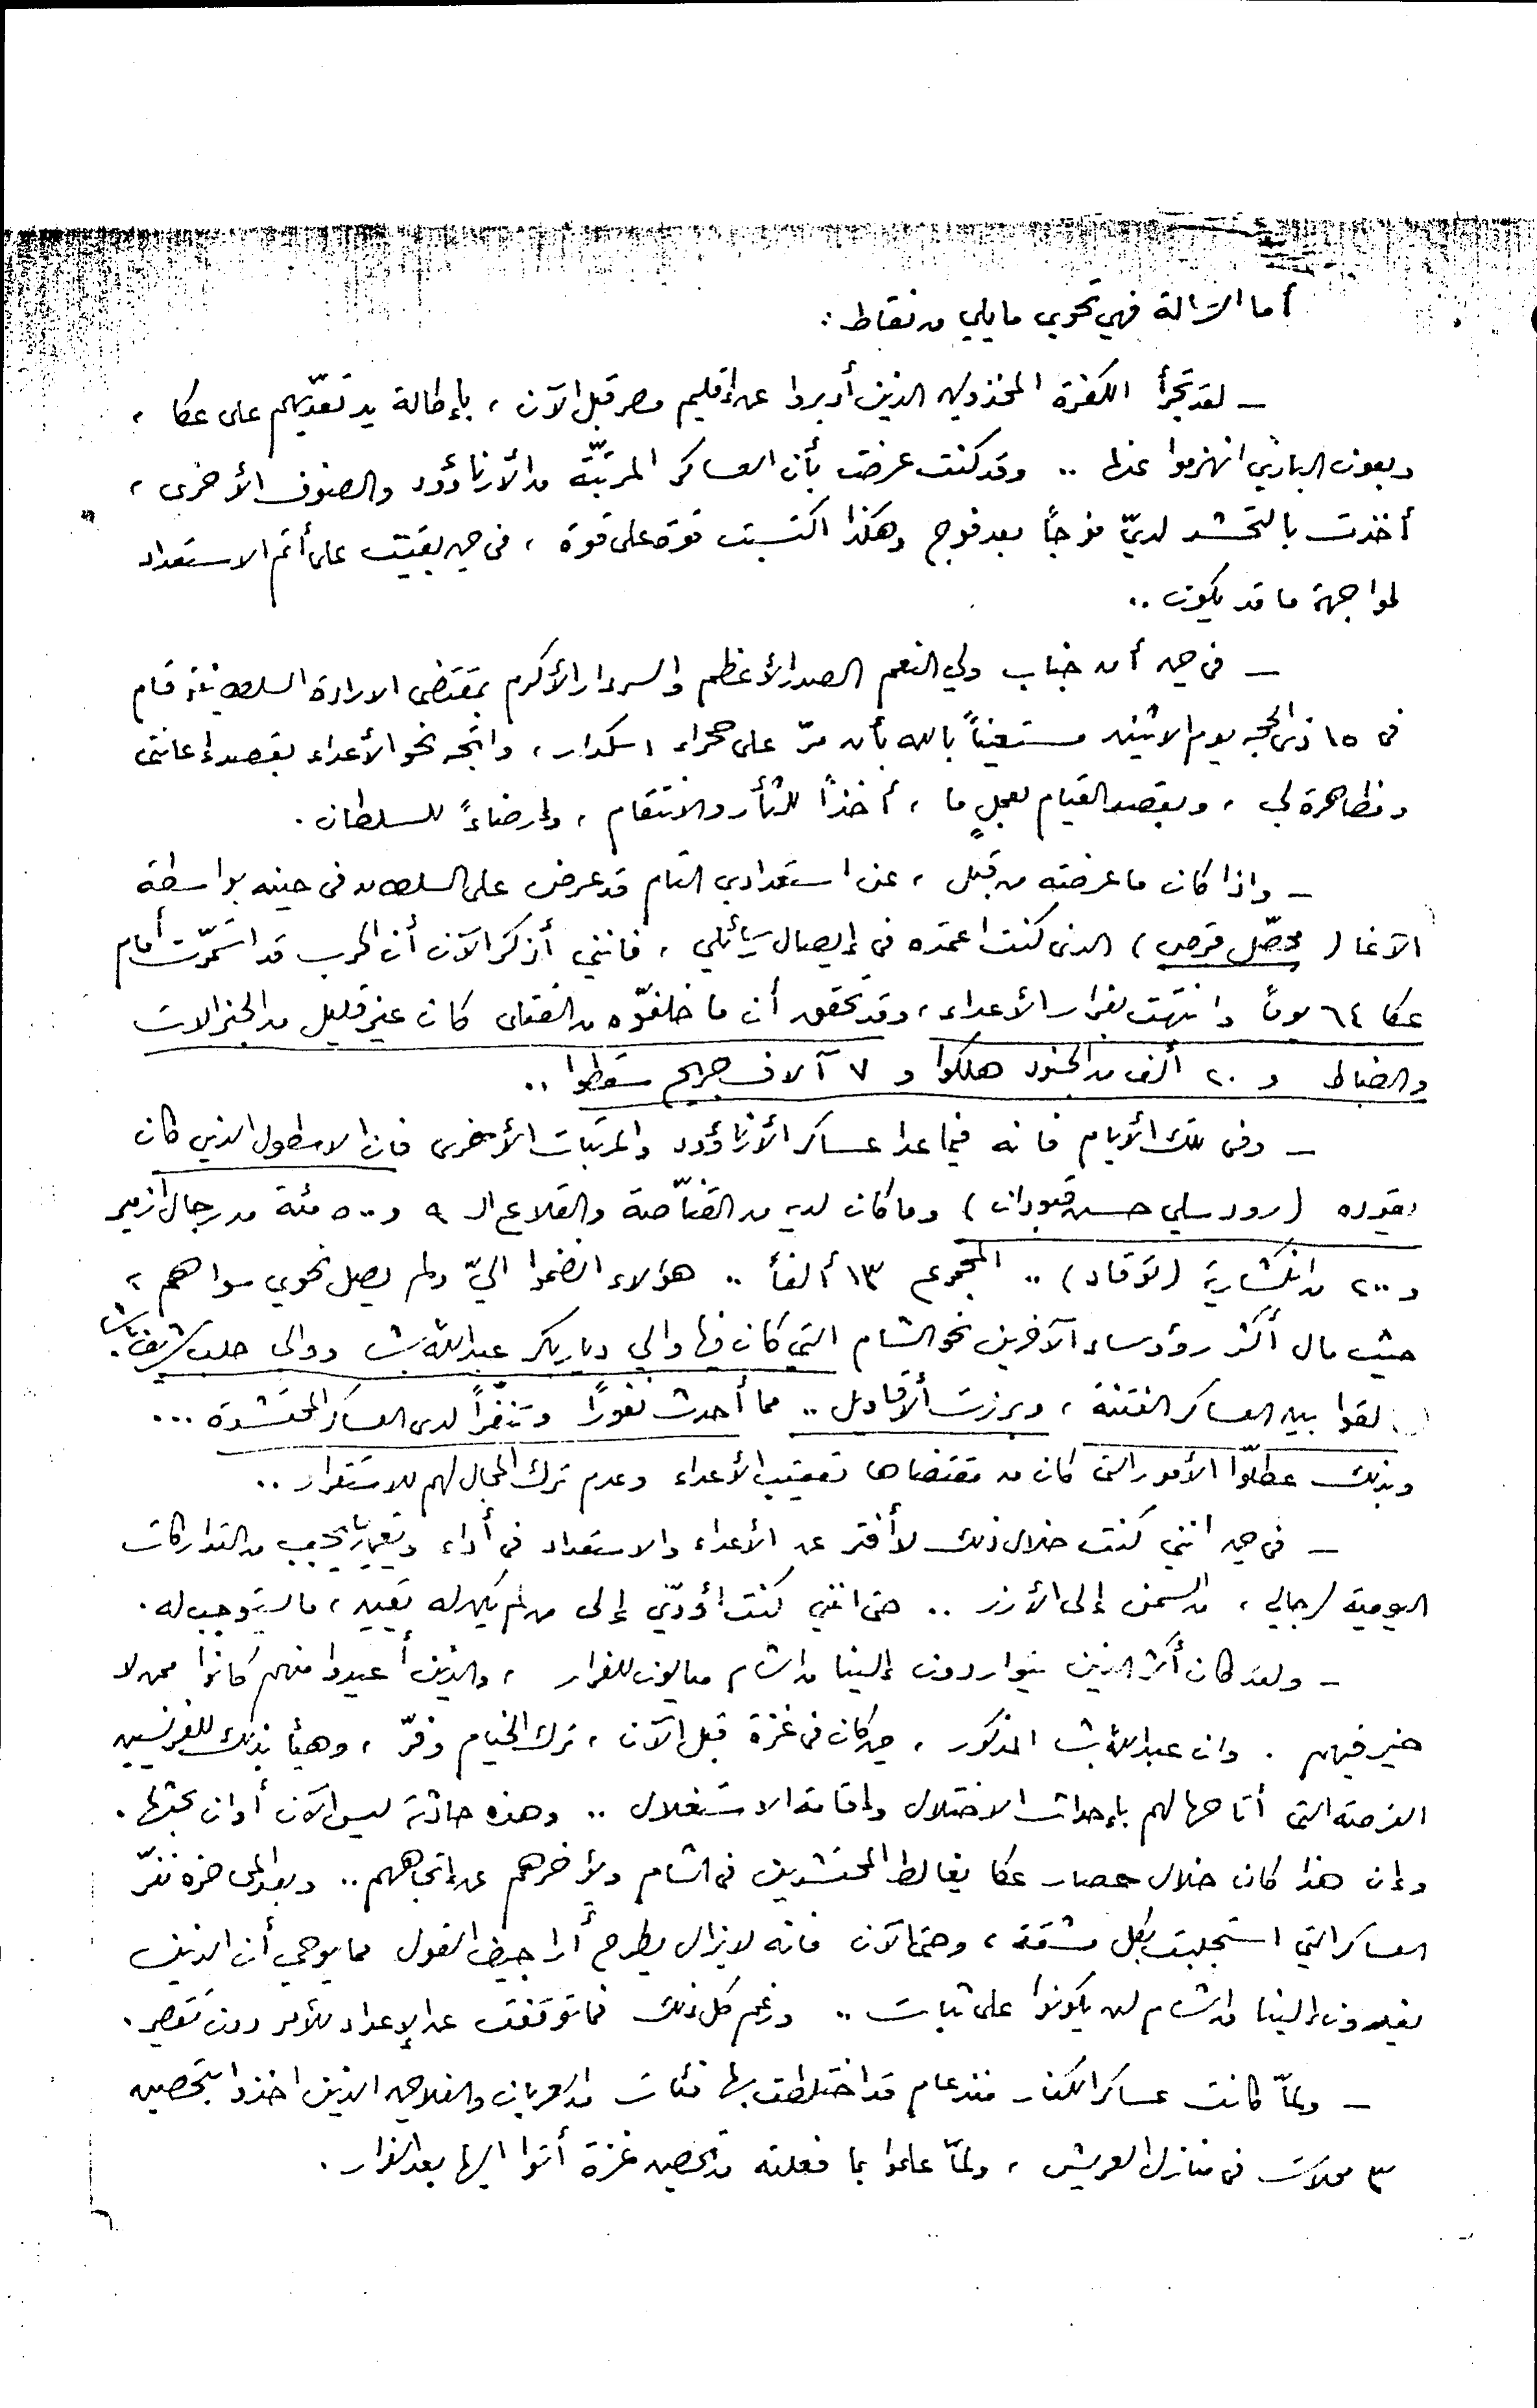 أما الرسالة فهي تحوي ما يلي من نقاط :
– لقد تجرأ الكفرة المخذولين الذين أدبروا عن إقليم مصر قبل الآن ، بإطالة يد تعدّيهم على عكا ،
وبعون الباري انهزموا عنها .. وقد كنت عرضت بأن العساكر المرتبّة من الأرناؤود والصنوف الأخرى ،
أخذت بالتحشد لديّ فوجاً بعد فوج وهكذا اكتسبت قوة على قوة ، في حين بقيت على أتم الاستعداد
لمواجهة ما قد يكون ..
– في حين أن جناب ولي النعم الصدر الأعظم والسردار الأكرم بمقتضى الارادة السلطانية قام
في ١٥ ذي الحجة يوم الاثنين مستعيناً بالله بأن مرّ على صحراء اسكدار ، واتجه نحو الأعداء بقصد إعانتي
ومظاهرة لي ، وبقصد القيام بعملٍ ما ، أخذاً للثأر والانتقام ، وإرضاءً للسلطان .
– واذا كان ما عرضته من قبل ، عن استعدادي التام قد عرض على السلطان في حينه بواسطة
الآغا ( محصّل قبرص ) الذي كنت اعتمده في إيصال رسائلي ، فانني أذكر الآن أن الحرب قد استمرّت أمام
عكا ٦٤ يوماً وانتهت بفرار الأعداء ، وقد تحقق أن ما خلفوّه من القتلى كان غير قليل من الجنرالات
والضباط و ٢٠ ألف من الجنود هلكوا و ٧ آلاف جريح سقطوا ..
– وفي تلك الأيام فانه فيما عدا عساكر الأرناؤود والمرتبات الأخرى فان الاسطول الذي كان
يقوده ( رودسلي حسن قبودان ) وما كان لديه من القنّاصة والقلاع الـ ٩ و ٥٠٠ مئة من رجال أزمير
و ٢٠٠ من انكشارية ( توقاد ) .. المجموع ١٣ ألفاً .. هؤلاء انضموا اليّ ولم يصل نحوي سواهم ،
حيث مال أكثر رؤوساء الآخرين نحو الشام التي كان فيها والي ديار بكر عبدالله باشا ووالي حلب شريف باشا .
القوا بين العساكر الفتنة ، وبرزت ألأقاويل .. مما أحدث نفوراً وتنفّراً لدى العساكر المحتشدة ...
وبذلك عطلّوا الأمور التي كان من مقتضاها تعقيب الأعداء وعدم ترك المجال لهم للاستقرار ..
– في حين انني كنت خلال ذلك لا أفتر عن الأعداء والاستعداد في أداء وتعيينات يجب من التداركات
اليومية لرجالي ، من السمن إلى الأرز .. حتى انني كنت أؤدّي إلى من لم يكن له تعيين ، ما يستوجب له .
– ولقد كان أكثر الذين يتواردون إلينا من الشام ميالون للفرار ، والذين أعيدوا منهم كانوا ممن لا
خير فيهم . وان عبدالله باشا المذكور ، حين كان في غزة قبل الآن ، ترك الخيام وفرّ ، وهيأ بذلك للفرنسيين
الفرصة التي أتاحها لهم بإحداث الاختلال وإقامة الاستغلال .. وهذه حادثة ليس الآن أوان بحثها .
وإن هذا كان خلال حصار عكا يغالط المحتشدين في الشام ويؤخرهم عن اتجاههم .. وبعد المحاضرة نفّر
العساكر التي استجلبت بكل مشقة ، وحتى الآن فانه لا يزال يطرح أراجيف القول مما يوحي أن الذين
يفدون إلينا من الشام لن يكونوا على ثبات .. ورغم كل ذلك فما توقفت عن الإعداد للأمر دون تقصير .
– ولمّا كانت عساكر الكفار منذ عام قد اختلطت بها فئات من العربان والفلاحين الذين اخذوا بتحصين
٣ محلات في منازل العريش ، ولمّا علموا بما فعلته من تحصين غزة أتوا اليها بعد الفرار .